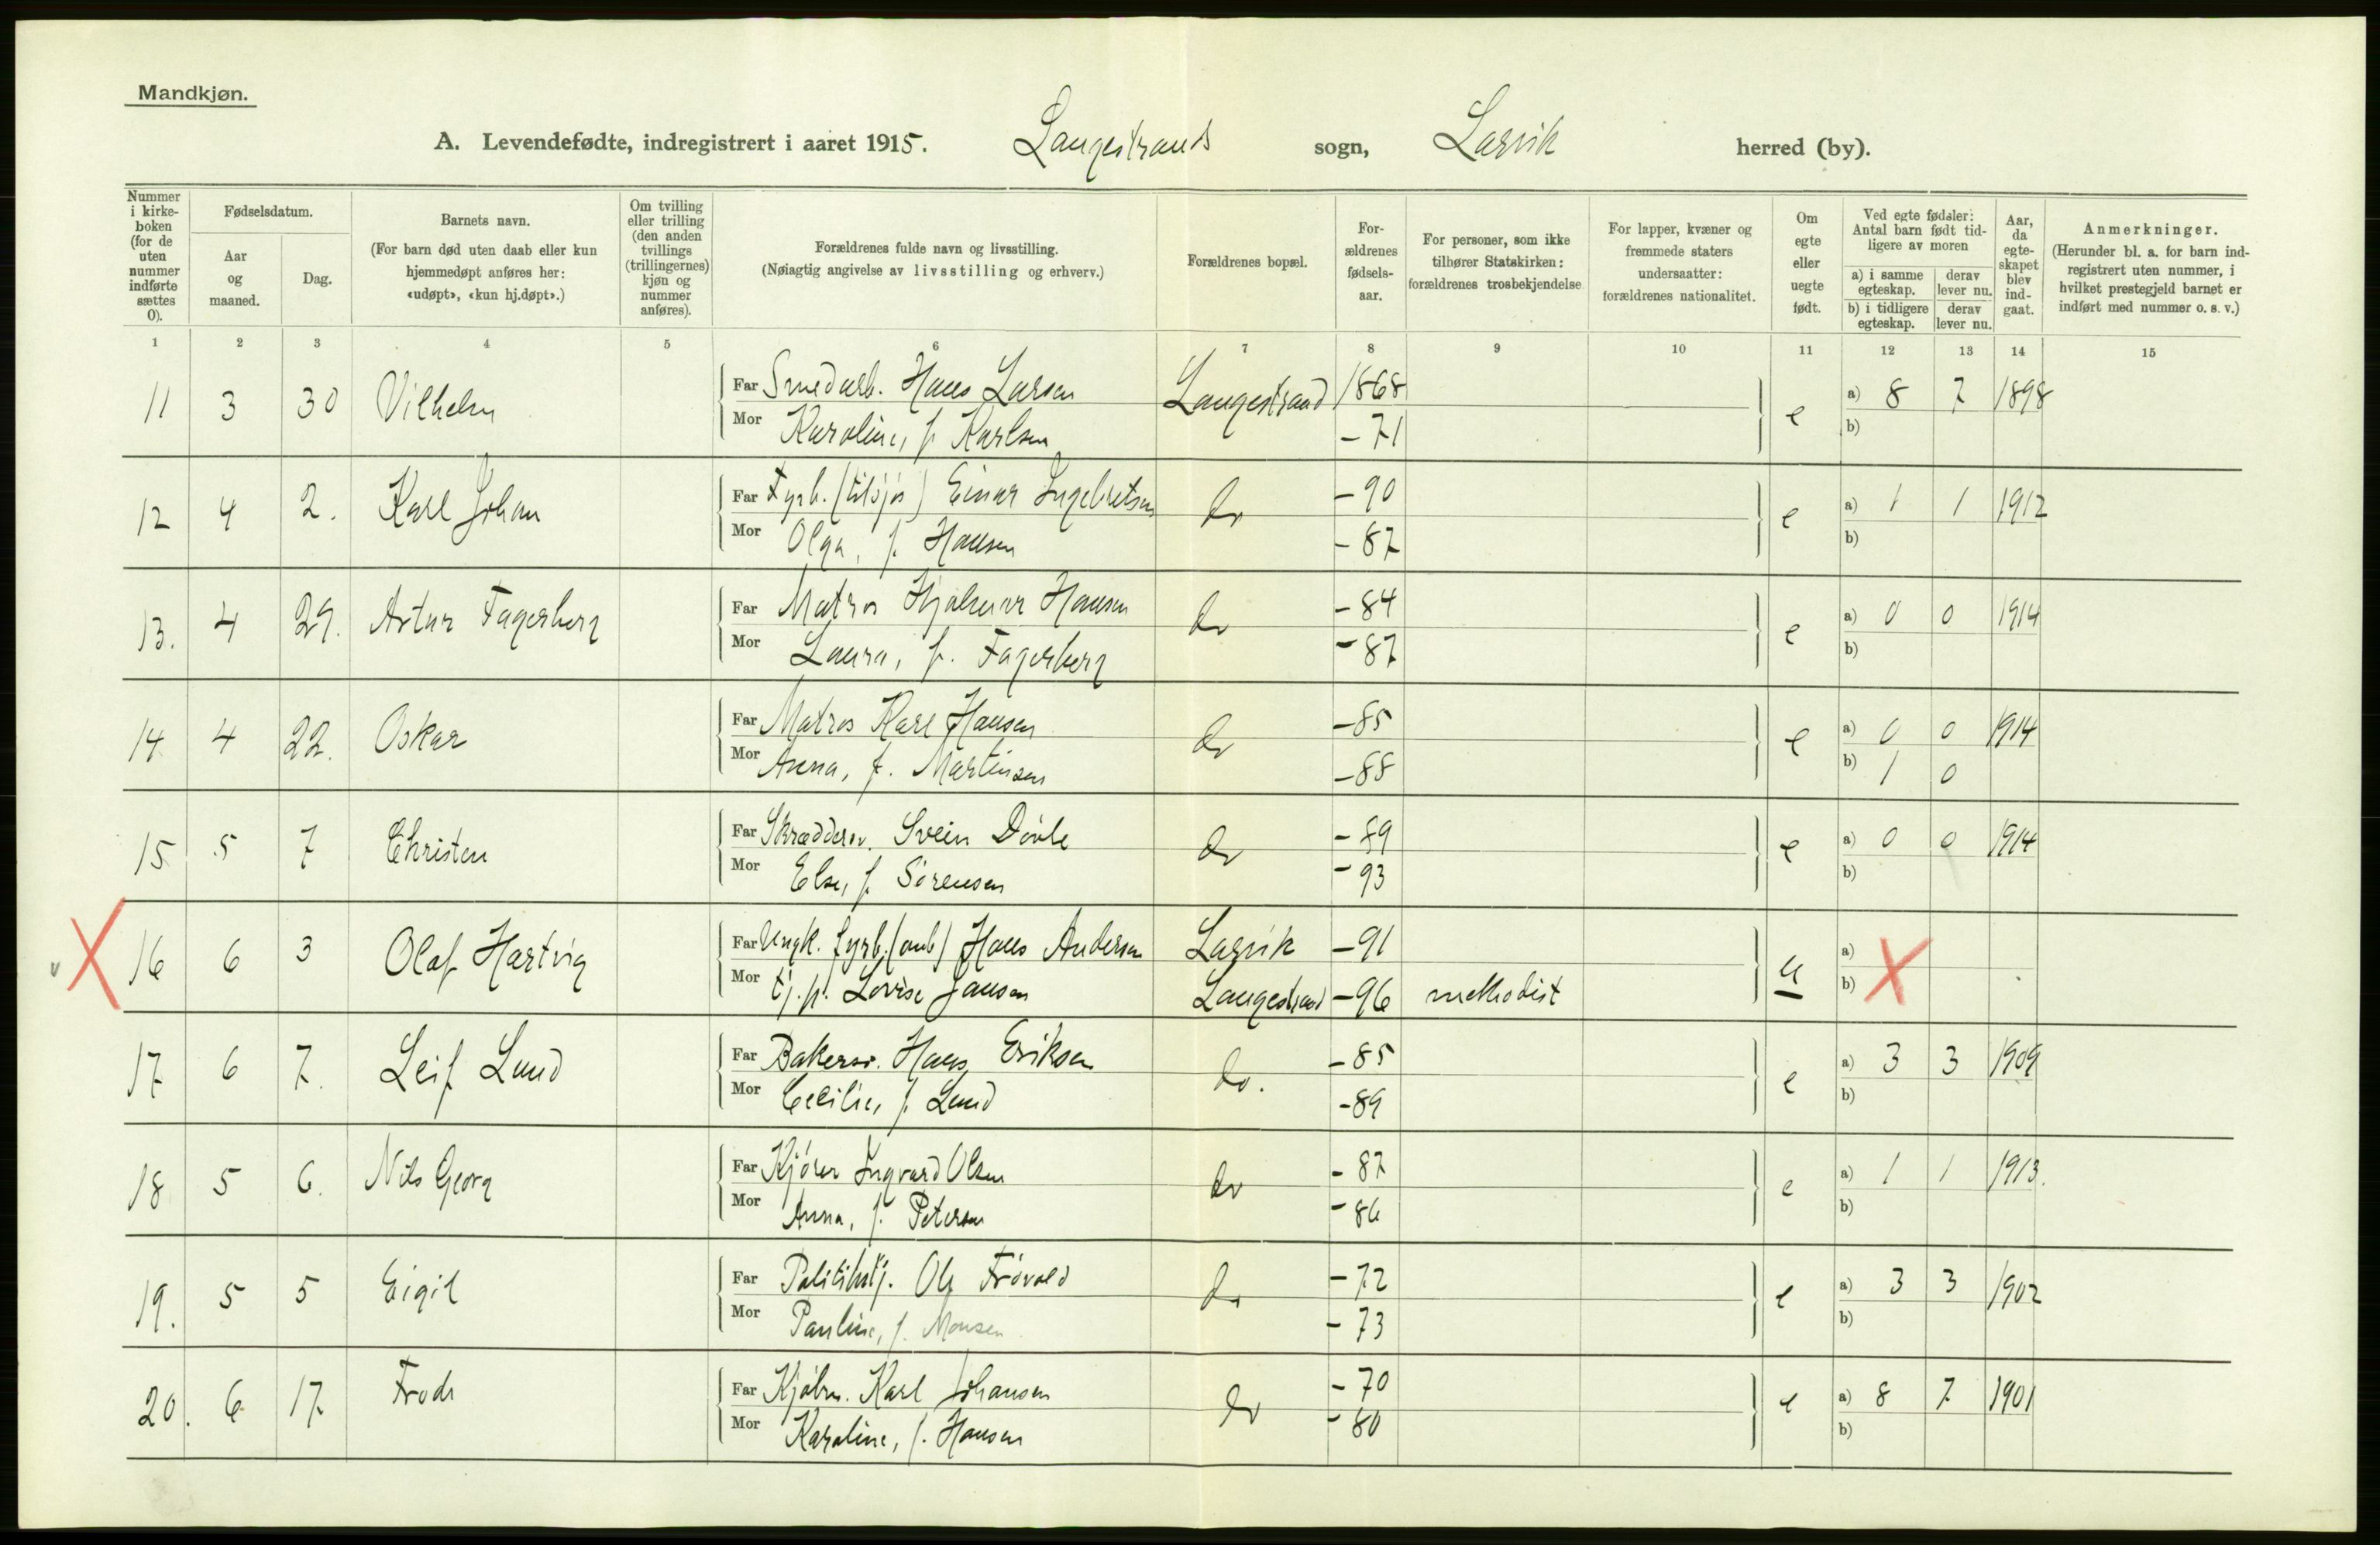 Mandkjøn.
A. Levendefødte, indregistrert i aaret 1915. Langestrands sogn, Larvik herred (by).
Nummer i kirke-boken (for de uten nummer indførte sættes 0).
Fødselsdatum.
Aar og maaned.
Dag.
Barnets navn.
(For barn død uten daab eller kun hjemmedøpt anføres her: «udøpt», «kun hj.døpt».)
Om tvilling eller trilling (den anden tvillings (trillingernes) kjøn og nummer anføres).
Forældrenes fulde navn og livsstilling.
(Nøiagtig angivelse av livsstilling og erhverv.)
Forældrenes bopæl.
For-ældrenes fødsels-aar.
For personer, som ikke tilhører Statskirken: forældrenes trosbekjendelse
For lapper, kvæner og fremmede staters undersaatter: forældrenes nationalitet.
Om egte eller uegte født.
Ved egte fødsler: Antal barn født tid-ligere av moren
a) i samme egteskap. derav lever nu.
b) i tidligere egteskap. derav lever nu.
Aar, da egte-skapet blev ind-gaat.
Anmerkninger.
(Herunder bl. a. for barn ind-registrert uten nummer, i hvilket prestegjeld barnet er indført med nummer o. s. v.)
1 2 3 4 5 6 7 8 9 10 11 12 13 14 15
11 3 30 Vilhelm Far Smedarb. Hans Larsen Langestrand 1868 e a) 8 7 1898
Mor Karoline, f. Karlsen - 71 b)
12 4 2. Karl Johan Far Fyrb. (tilsjøs) Einar Ingebretsen do - 90 e a) 1 1 1912
Mor Olga, f. Hansen - 87 b)
13. 4 29. Artur Fagerberg Far Matros Hjalmar Hansen do - 84 e a) 0 0 1914
Mor Laura, f. Fagerberg - 87 b)
14. 4 22. Oskar Far Matros Karl Hansen do - 85 e a) 0 0 1914
Mor Anna, f. Martinsen - 88 b) 1 0
15 5 7 Christen Far Skræddersv. Svein Dövle do - 89 e a) 0 0 1914
Mor Else, f. Sörensen - 93 b)
X 16 6 3 Olaf Hartvig Far Ungk. fyrb. Hans Andersen Larvik - 91 u a) X
Mor tj.p. Lovise Jansen Langestrand - 96 methodist b)
17 6 7. Leif Lund Far Bakersv. Hans Eriksen do. - 85 e a) 3 3 1909
Mor Cecilie, f. Lund - 89 b)
18 5 6. Nils Georg Far Kjörer Ingvard Olsen do - 87 e a) 1 1 1913.
Mor Anna, f. Petersen - 86 b)
19. 5 5 Eigil Far Politibetj. Ole Frövold do - 72 e a) 3 3 1902
Mor Pauline, f. Monsen - 73 b)
20. 6 17 Frode Far Kjölm. Karl Johansen do - 70 e a) 8 7 1901
Mor Karoline, f. Hansen - 80 b)